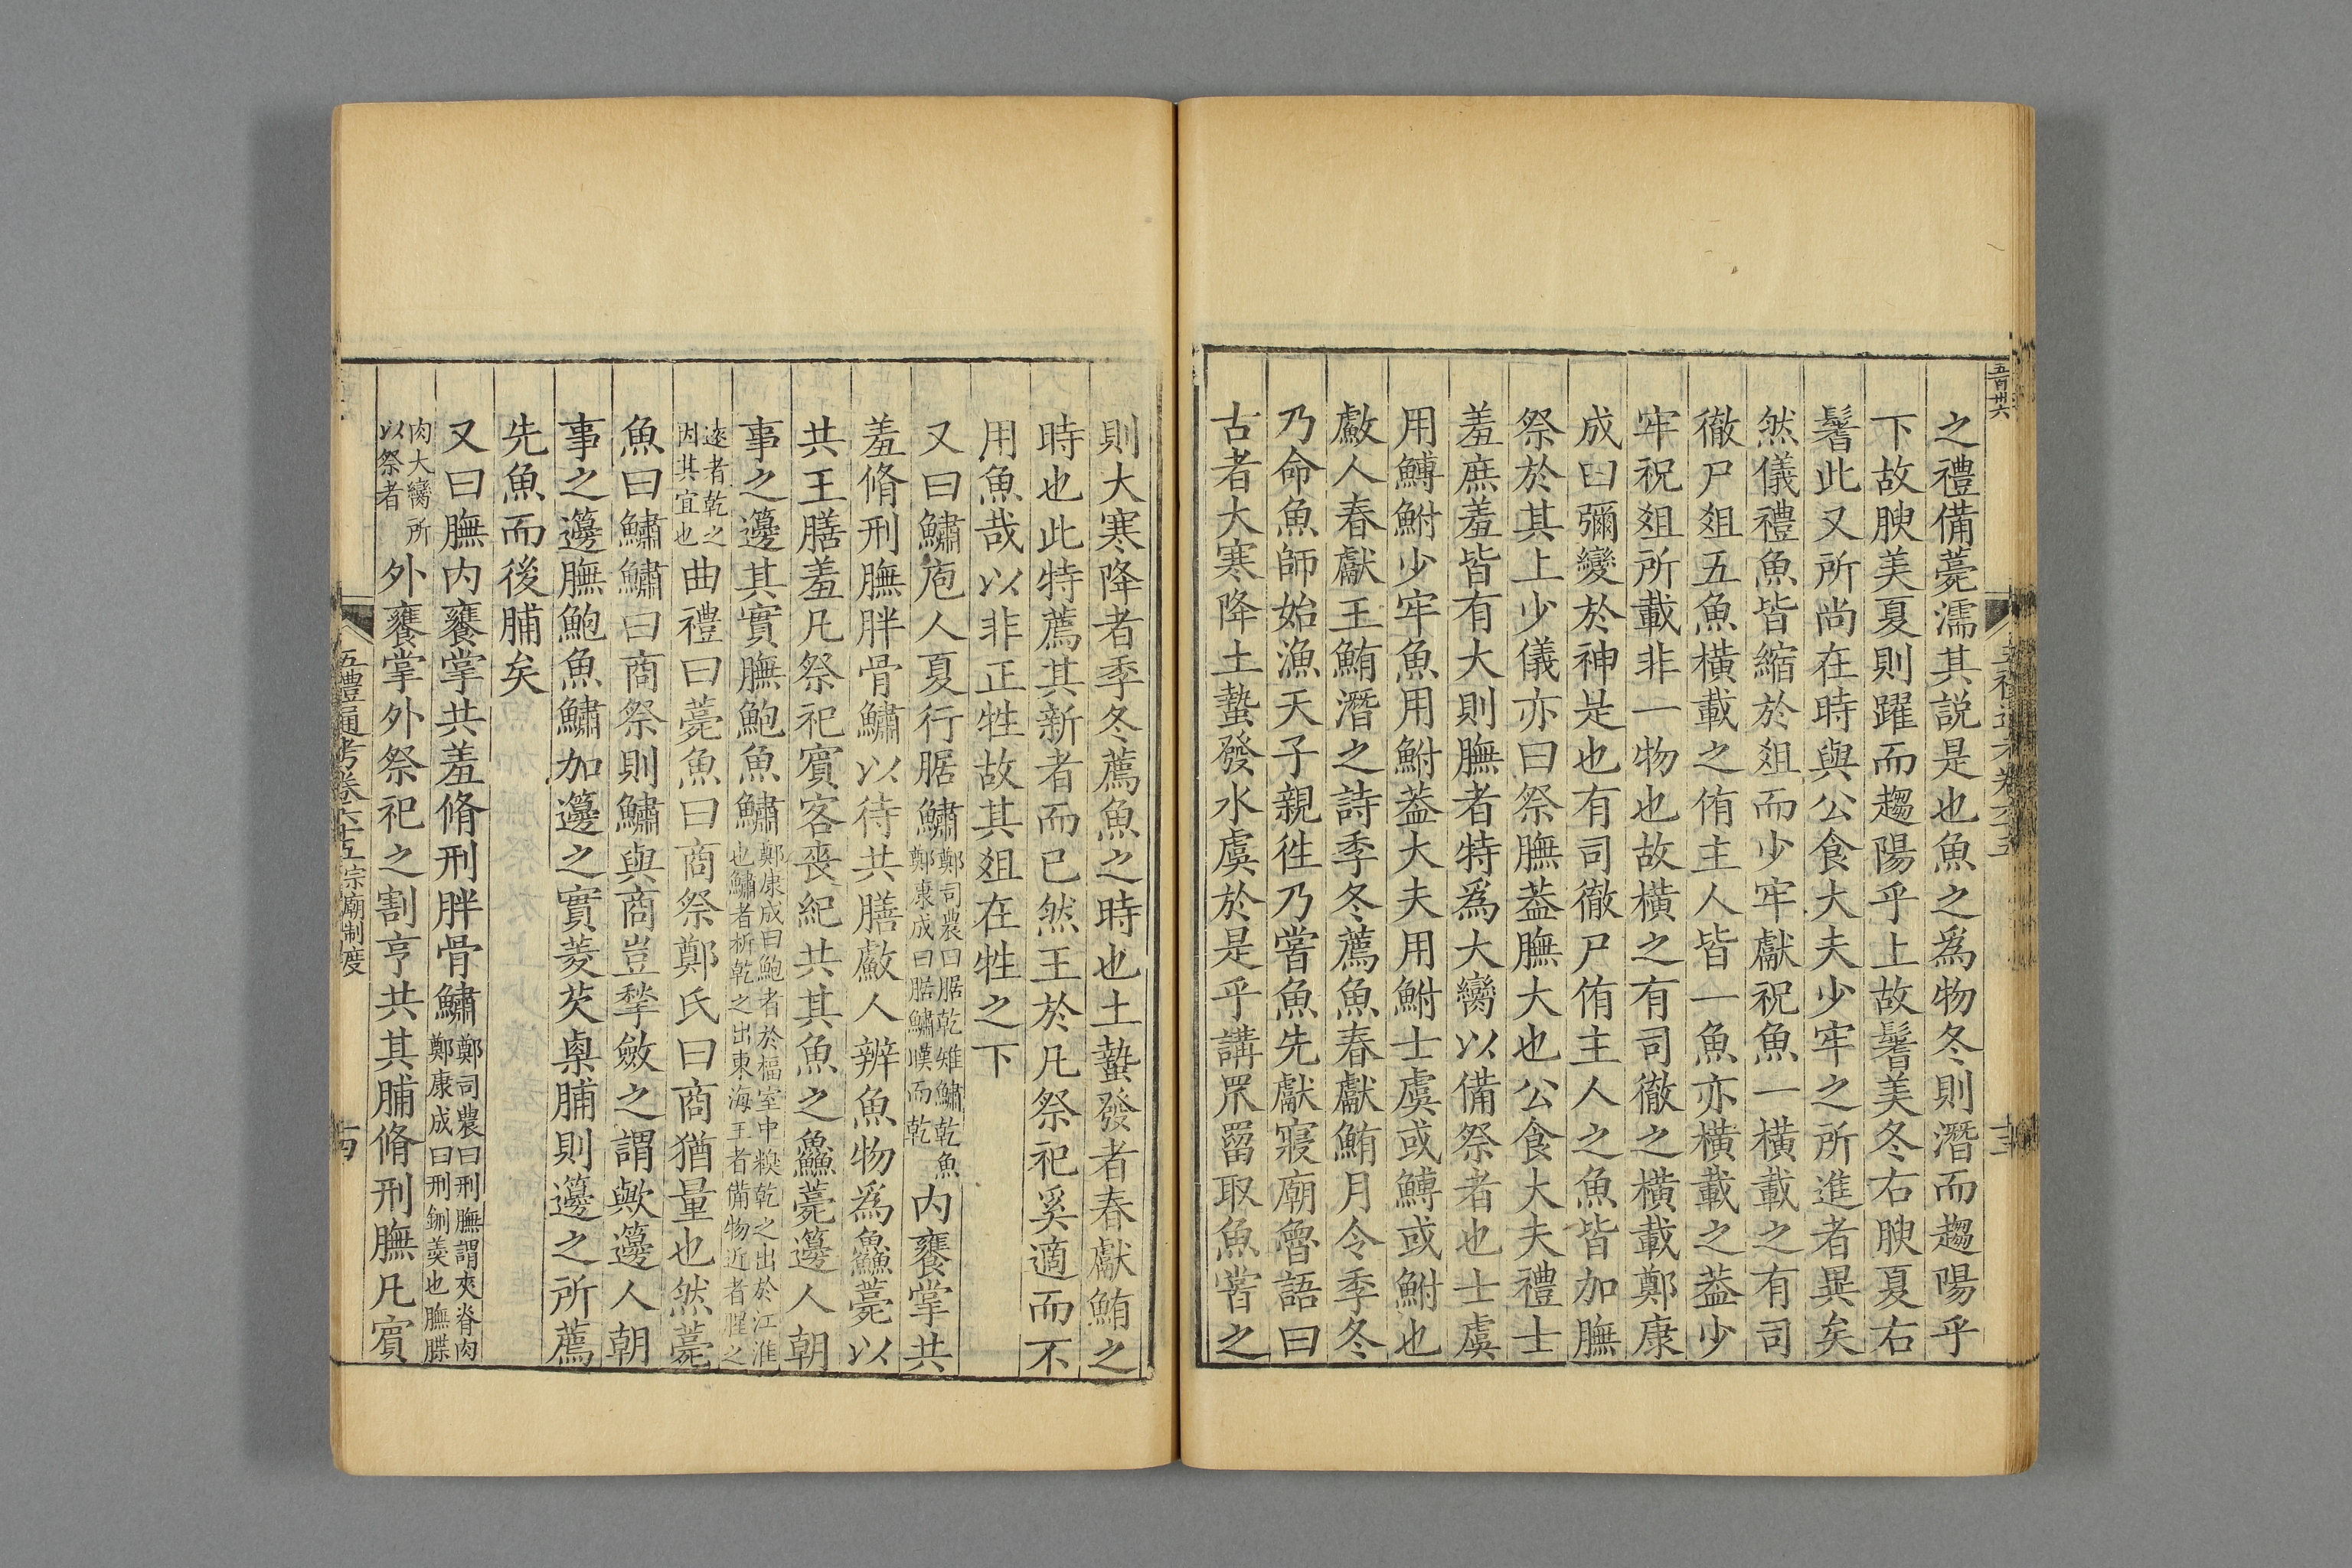 五百卅六
之禮備薧濡其説是也魚之爲物冬則潛而趨陽乎
下故腴美夏則躍而趨陽乎上故鬐美冬右腴夏右
鬐此又所尚在時與公食大夫少牢之所進者異矣
然儀禮魚皆縮於俎而少牢獻祝魚一橫載之有司
徹尸俎五魚橫載之侑主人皆一魚亦橫載之葢少
牢祝俎所載非一物也故橫之有司徹之橫載鄭康
成曰彌變於神是也有司徹尸侑主人之魚皆加膴
祭於其上少儀亦曰祭膴葢膴大也公食大夫禮士
羞庶羞皆有大則膴者特爲大臠以備祭者也士虞
用鱄鮒少牢魚用鮒葢大夫用鮒士虞或鱄或鮒也
䱷人春獻王鮪潛之詩季冬薦魚春獻鮪月令季冬
乃命魚師始漁天子親徃乃嘗魚先獻寢廟魯語曰
古者大寒降土蟄發水虞於是乎講罛罶取魚嘗之
則大寒降者季冬薦魚之時也土蟄發者春獻鮪之
時也此特薦其新者而已然王於凡祭祀奚適而不
用魚哉以非正牲故其俎在牲之下
又曰鱐庖人夏行腒鱐鄭司農曰腒乾雉鱐乾魚鄭康成曰腒鱐暵而乾内饔掌共
羞脩刑膴胖骨鱐以待共膳䱷人辨魚物爲鱻薧以
共王膳羞凡祭祀賓客喪紀共其魚之鱻薧籩人朝
事之籩其實膴鮑魚鱐鄭康成曰鮑者於楅室中糗乾之出於江淮也鱐者析乾之出東海王者備物近者腥之
逺者乾之因其宜也曲禮曰薧魚曰商祭鄭氏曰商猶量也然薧
魚曰鱐鱐曰商祭則鱐與商豈犂斂之謂歟籩人朝
事之籩膴鮑魚鱐加籩之實菱芡㮚脯則籩之所薦
先魚而後脯矣
又曰膴内饔掌共羞脩刑胖骨鱐鄭司農曰刑膴謂夾脊肉鄭康成曰刑鉶羮也膴䐑
肉大臠所以祭者外饔掌外祭祀之割亨共其脯脩刑膴凡賓
五禮通考卷六十五宗廟制度